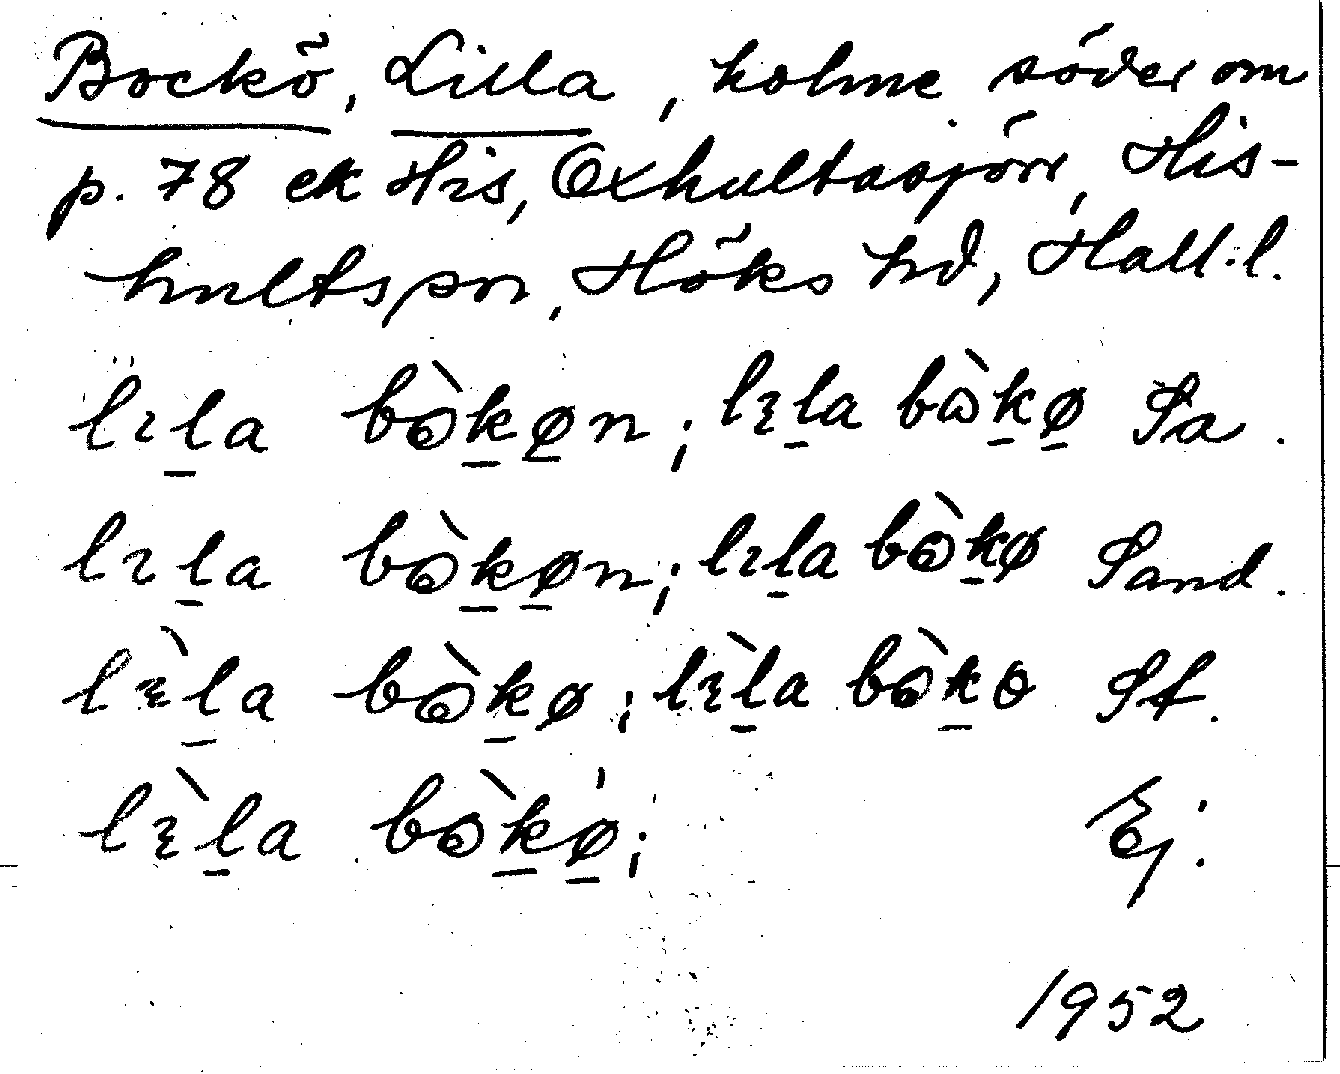 Bockö, Lilla, holme söder om
p. 78 ek His, Oxhultasjön, His-
hults sn, Höks hd, Hall.l.
lɪla bòkøn; lɪla bòkø Sa.
lɪla bòkøn; lɪla bòkø Sand.
lɪ̀la bòkø; lɪ̀la bòkɵ St.
lɪ̀la bòkø; Ej.
1952